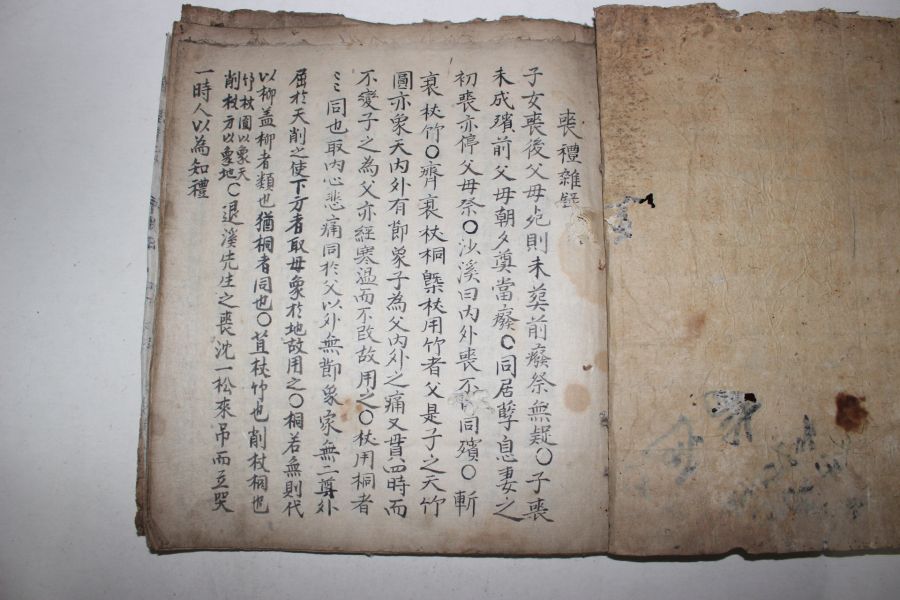 喪禮雜録
子女喪後父母死則未葬前癈祭無疑〇子喪
未成殯前父母朝夕奠當癈〇同居孽息妻之
初喪亦停父母祭〇沙溪曰内外喪不同殯〇斬
衰杖竹〇齊衰杖桐槩杖用竹者父是子之天竹
圓亦象天内外有節象子為父内外之痛又貫四時而
不變子之為父亦經寒温而不改故用之〇杖用桐者
〻同也取内心悲痛同於父以外無節象家無二尊外
屈於天削之使下方者取母象於地故用之〇桐若無則代
以柳盖柳者類也猶桐者同也〇苴杖竹也削杖桐也
竹杖圓以象天
削杖方以象地〇退溪先生之喪沈一松來吊而立哭
一時人以為知禮